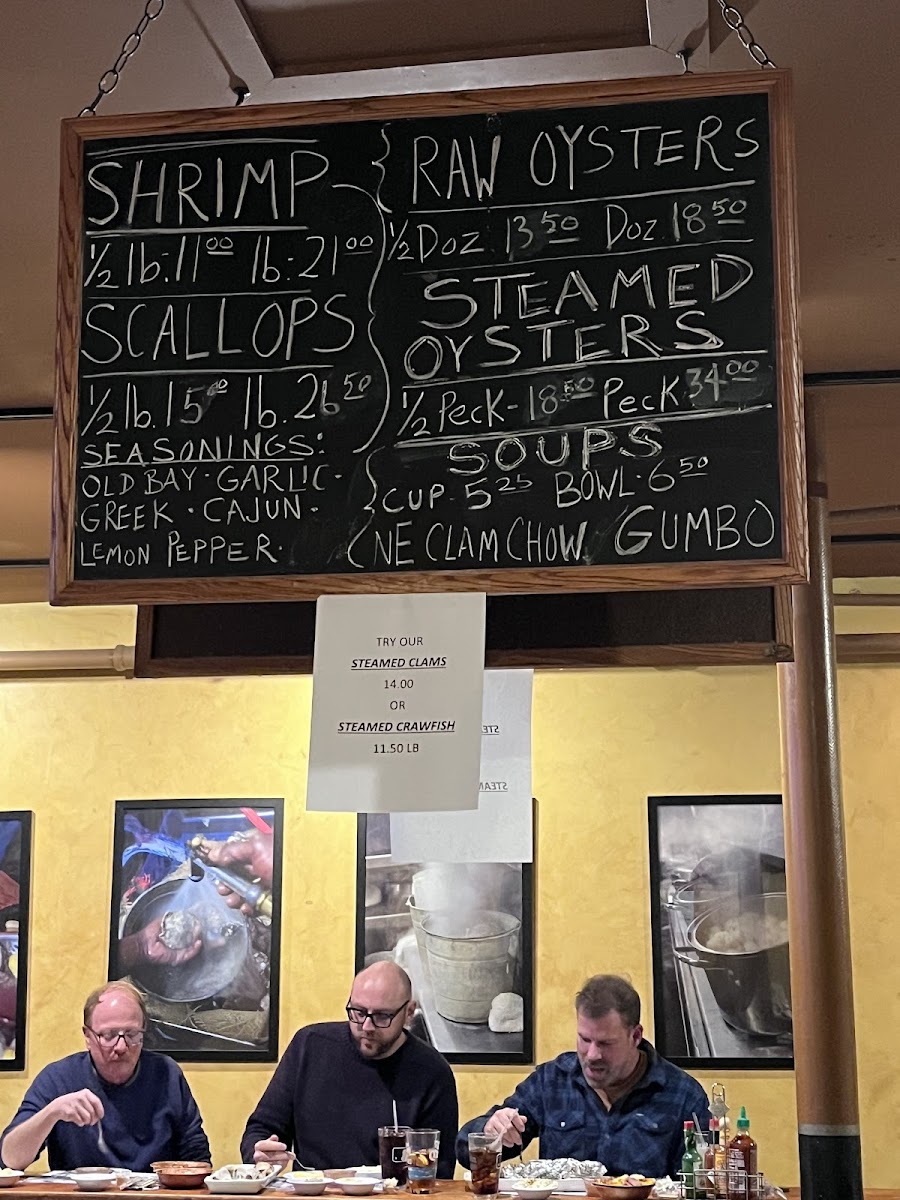 SHRIMP
1/2 lb: 11 00 lb: 21 00
SCALLOPS
1/2 lb. 15 00 lb. 26 50
SEASONINGS:
OLD BAY · GARLIC ·
GREEK · CAJUN ·
LEMON PEPPER ·
RAW OYSTERS
1/2 Doz. 13 50 Doz. 18 50
STEAMED
OYSTERS
1/2 Peck - 18 50 Peck 34 00
SOUPS
CUP · 5 25 BOWL · 6 50
NE CLAM CHOW. GUMBO
TRY OUR
STEAMED CLAMS
14.00
OR
STEAMED CRAWFISH
11.50 LB
STE
STEAM